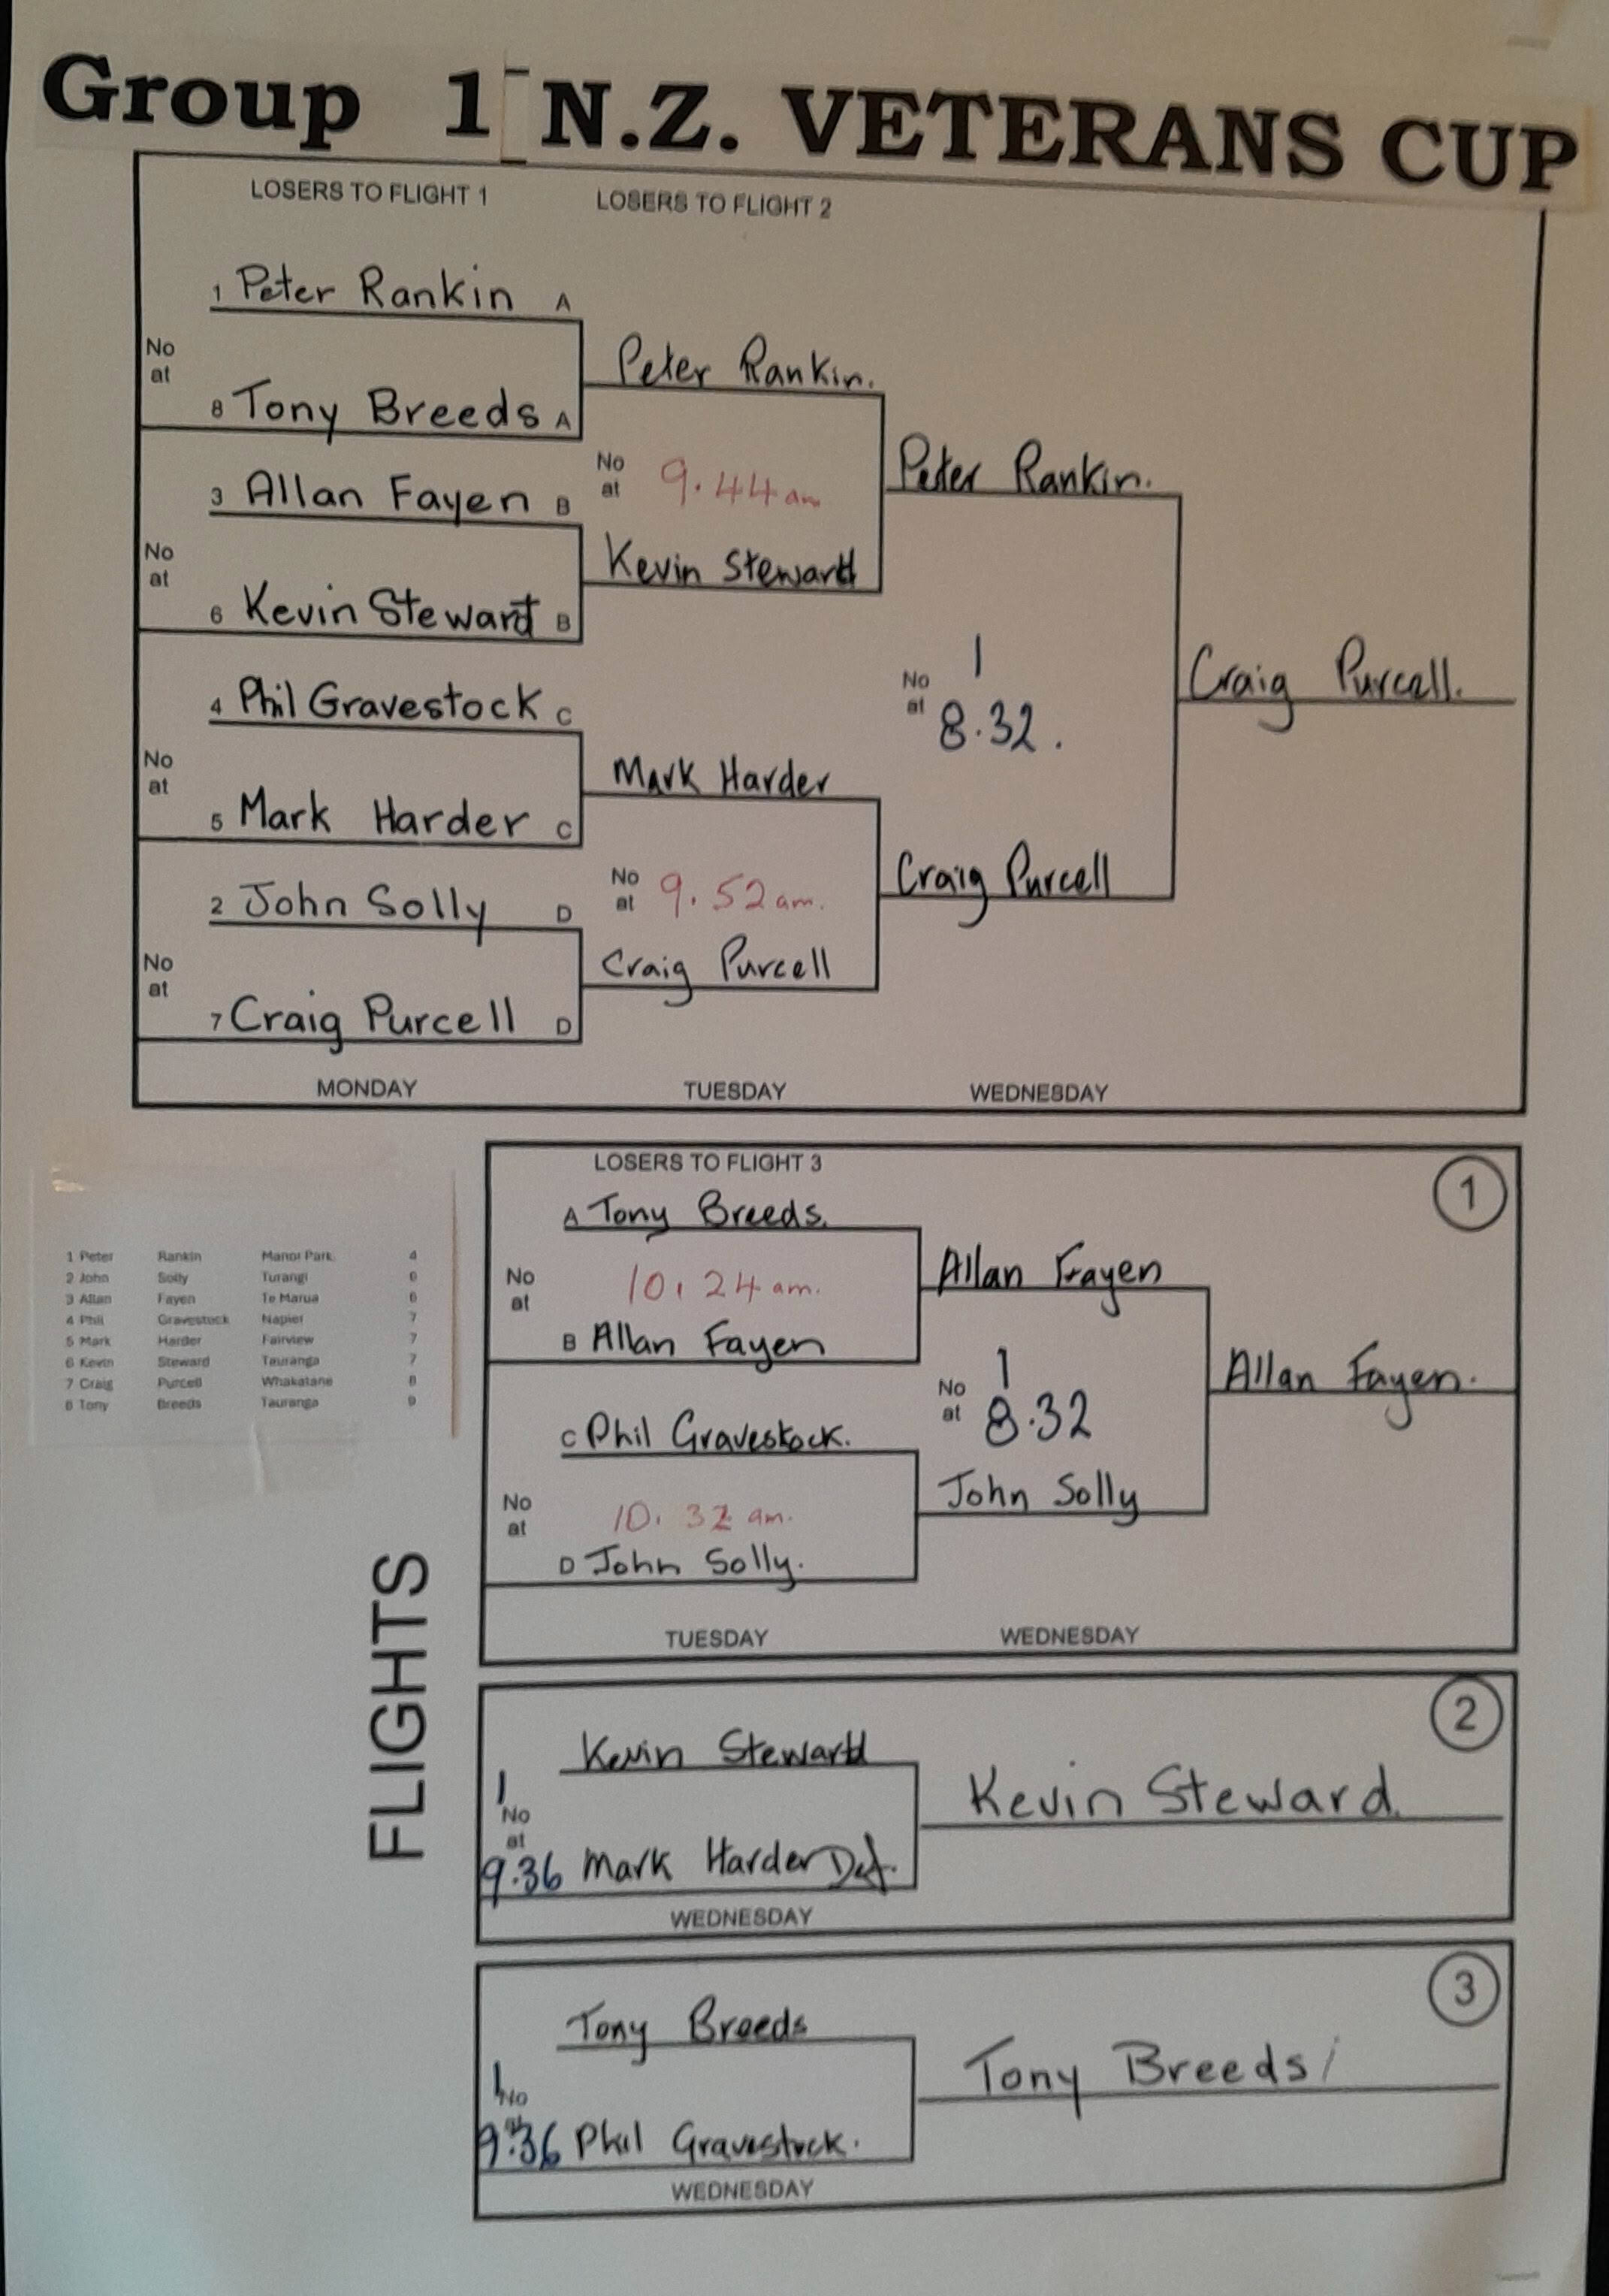 Group 1 N.Z. VETERANS CUP
LOSERS TO FLIGHT 1 LOSERS TO FLIGHT 2
1 Peter Rankin A
No
at
Peter Rankin.
8 Tony Breeds A
No
at 9.44am
Peter Rankin.
3 Allan Fayen B
No
at
Kevin Steward
6 Kevin Steward B
No 1
at 8.32.
Craig Purcell.
4 Phil Gravestock C
No
at
Mark Harder
5 Mark Harder C
No
at 9.52am.
Craig Purcell
2 John Solly D
No
at
Craig Purcell
7 Craig Purcell D
MONDAY TUESDAY WEDNESDAY
1 Peter Rankin Manor Park 4
2 John Solly Turangi 6
3 Allan Fayen Te Marua 6
4 Phil Gravestock Napier 7
5 Mark Harder Fairview 7
6 Kevin Steward Tauranga 7
7 Craig Purcell Whakatane 8
8 Tony Breeds Tauranga 9
FLIGHTS
LOSERS TO FLIGHT 3
1
A Tony Breeds.
No
at 10.24am.
Allan Fayen
B Allan Fayen
No 1
at 8.32
Allan Fayen.
C Phil Gravestock.
No
at 10.32am.
John Solly
D John Solly.
TUESDAY WEDNESDAY
2
Kevin Steward
1
No
at
9.36 Mark Harder Def.
Kevin Steward.
WEDNESDAY
3
Tony Breeds
1
No
9.36 Phil Gravestock.
Tony Breeds
WEDNESDAY